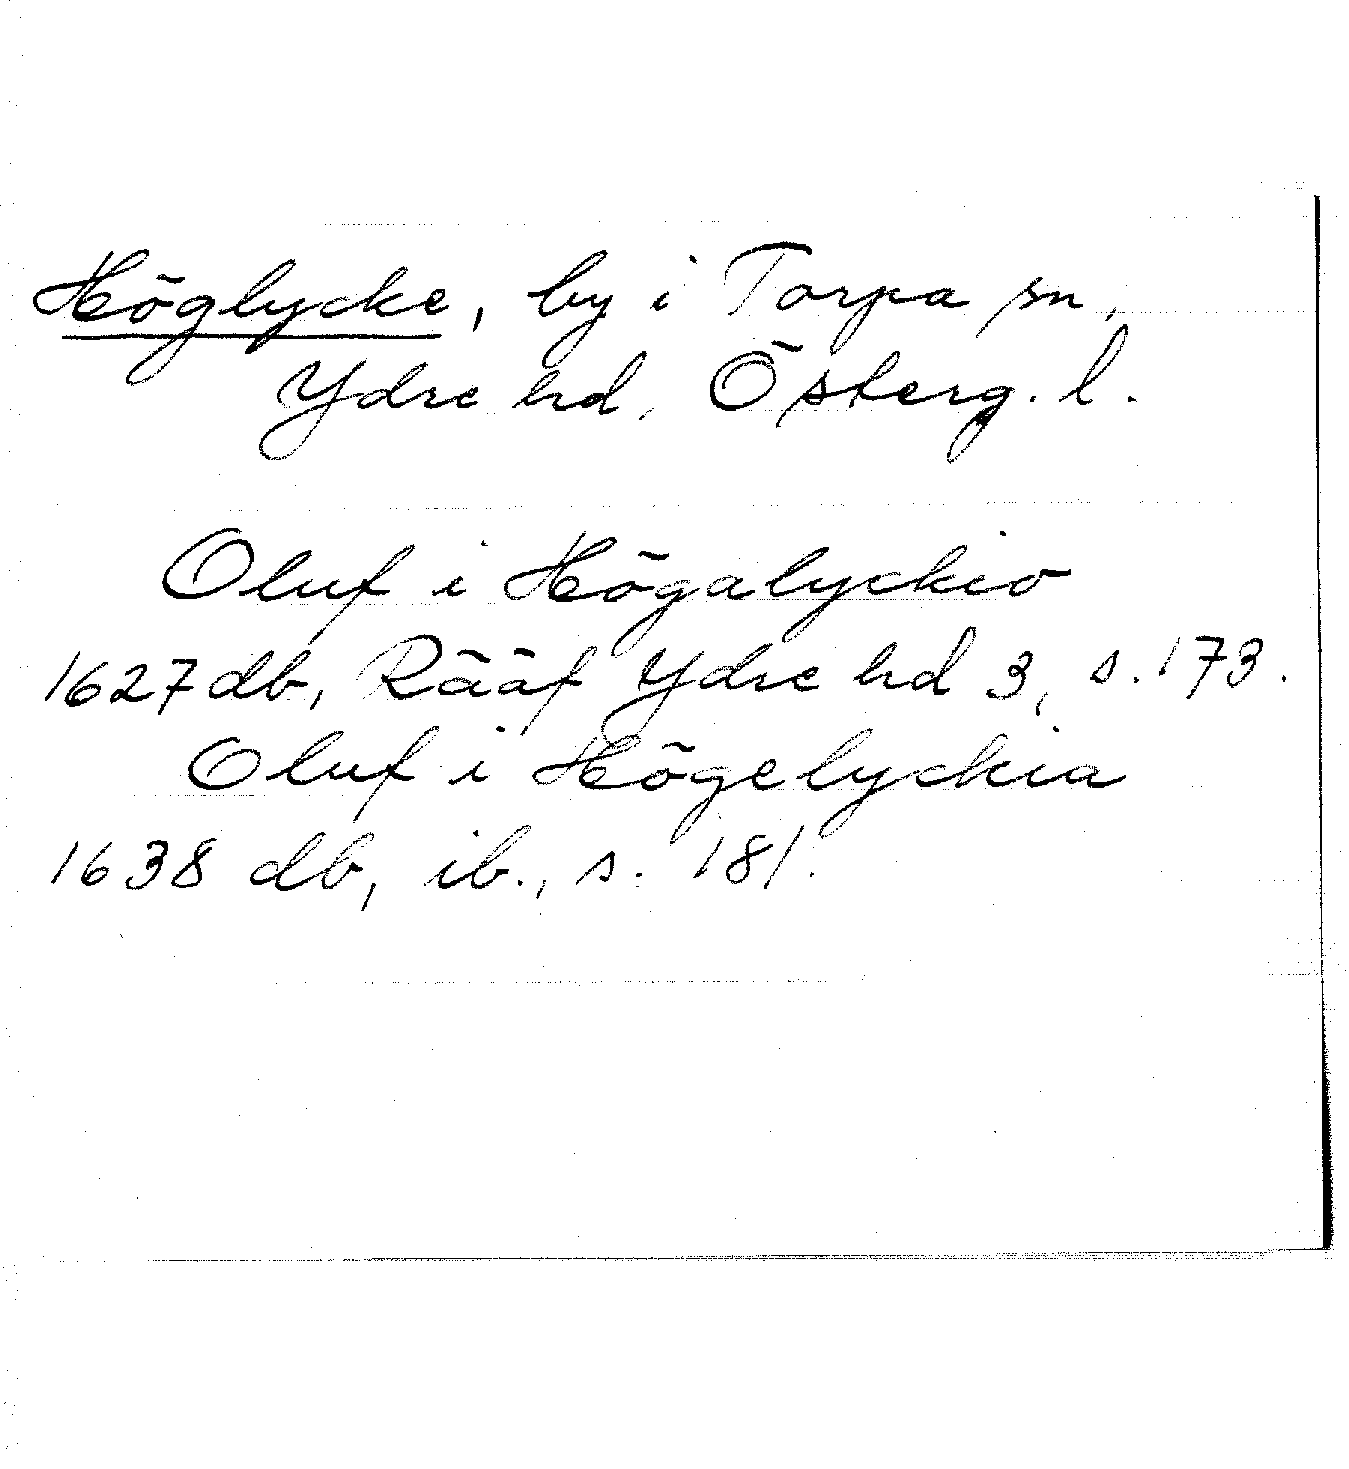 Höglycke, by i Torpa sn,
Ydre hd, Österg. l.
Oluf i Högalyckio
1627 db, Rääf Ydre hd 3, s. 173.
Oluf i Högelyckia
1638 db, ib., s. 181.